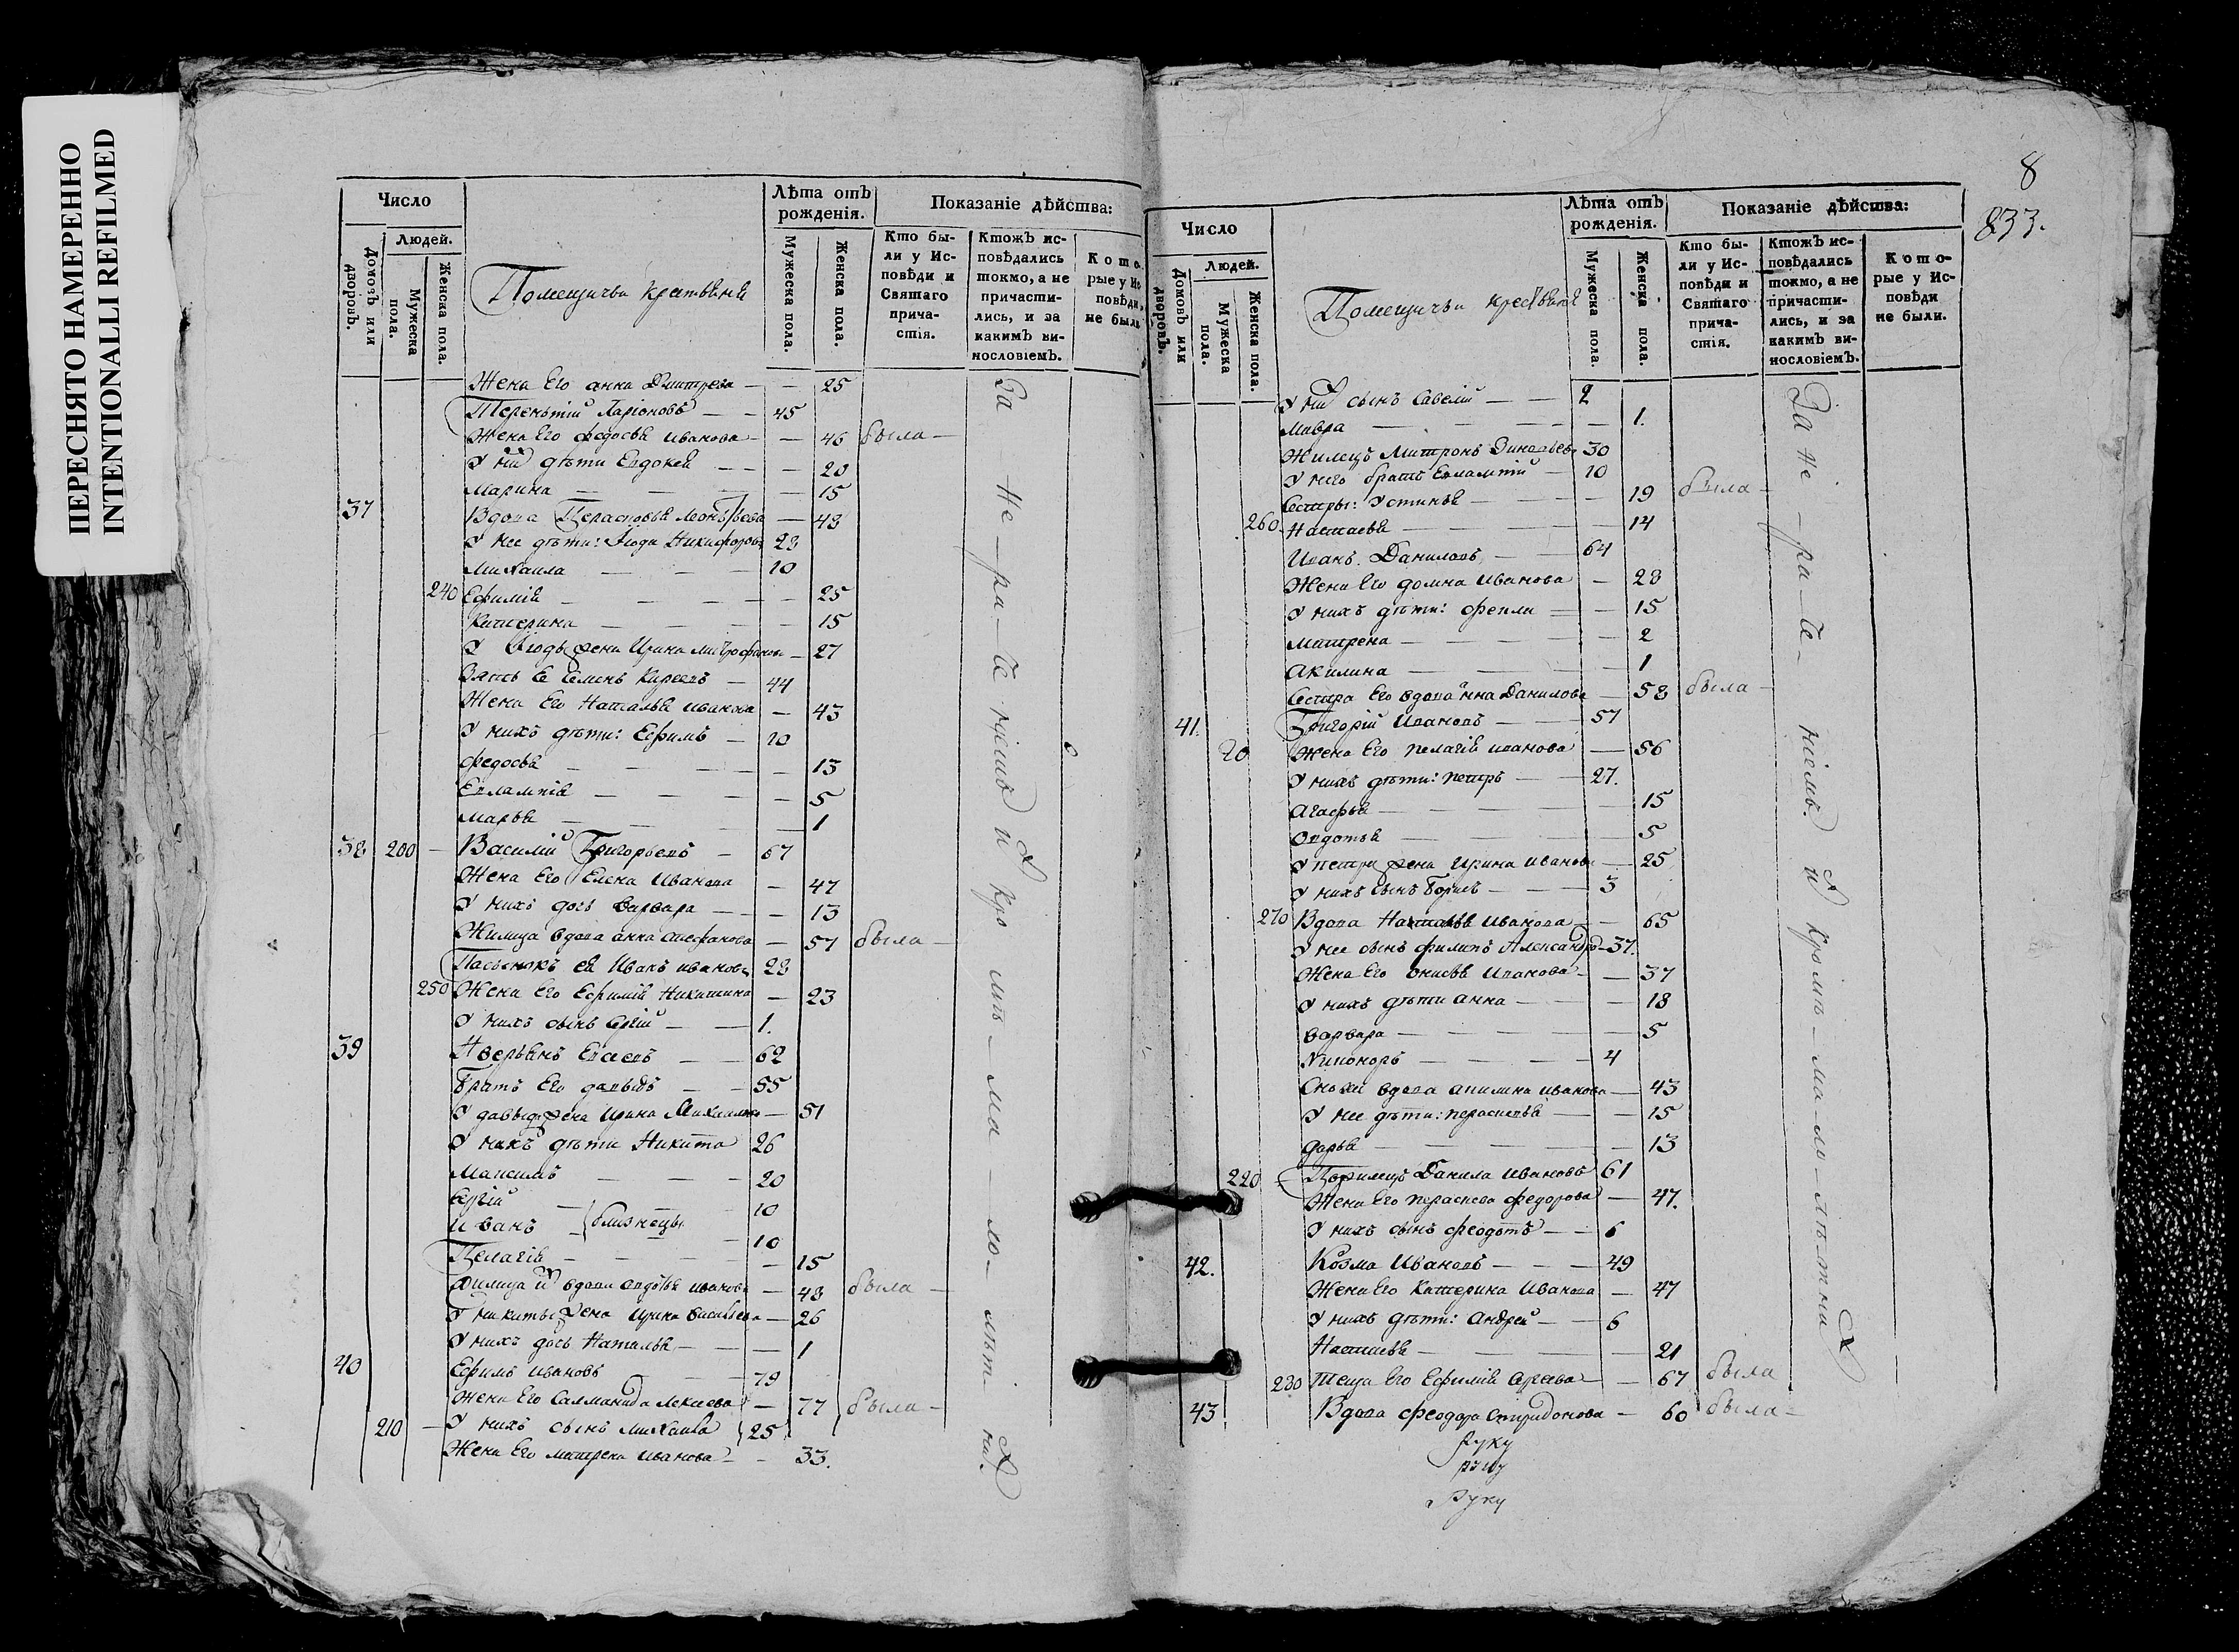 ПЕРЕСНЯТО НАМЕРЕННО
INTENTIONALLI REFILMED
Число
Людей.
Домовъ или дворовъ.
Мужеска пола.
Женска пола.
Помещичьи крестьяне
Лѣта отъ рожденія.
Мужеска пола.
Женска пола.
Показаніе дѣйства:
Кто были у Исповѣди и Святаго причастія.
Ктожъ исповѣдались токмо, а не причастились, и за какимъ винословіемъ.
Которые у Исповѣди не были
Жена Его анна Дмитрева — — 25
Терентiй Ларiоновъ — — 45
Жена Его федосья иванова — — 46 была —
У них дѣти Евдокея — — — 20
Марина — — — — 15
37 Вдова Парасковья Леонтьева — 48
У нее дѣти: Никифоровъ 28
Михаила — — — 10
240 Ефимiя — — — — 25
Катерина — — — — 15
У жена Ирина митрофанова — 27
Зять Ее Семенъ Киреевъ — 44
Жена Его Наталья иванова — 43
У нихъ дѣти: Ефимъ — 10
федосья — — — — 13
Евлампiя — — — — 5
марья — — — 1
38 200 — Василiй Григорьевъ — 67
Жена Его Елена Иванова — 47
У нихъ дочь варвара — — — 13
Жилица вдова анна Стефанова — 57 была —
Пасынокъ ея Иванъ ивановъ 28
250 Жена Его Ефимiя Никитина — 23
У нихъ сынъ Сергiй — — 1.
39 Аверьянъ Евсеевъ — — 62
братъ Его давыдъ — — 55
У давыда жена Ирина Михаилова — 51
У нихъ дѣти Никита 26
Максимъ — — — 20
Сергiй — 10
иванъ — близнецы — 10
Пелагiя — — — — 15
жилица их вдова авдотья иванова — 48 была —
У никиты жена Ирина васильева — 26
У нихъ дочь Наталья — — — 1
40 Ефимъ ивановъ — — 79
Жена Его Саламанида Алексева — 77 была —
210 — У нихъ сынъ михаила 25
Жена Его матрена иванова — — 33.
За не ра че нiемъ и кро мѣ ма ло лѣт ни
8
833.
Число
Людей.
Домовъ или дворовъ.
Мужеска пола.
Женска пола.
Помещичьи крестьяне
Лѣта отъ рожденія.
Мужеска пола.
Женска пола.
Показаніе дѣйства:
Кто были у Исповѣди и Святаго причастія.
Ктожъ исповѣдались токмо, а не причастились, и за какимъ винословіемъ.
Которые у Исповѣди не были.
У них сынъ Савелiй — — 2
Мавра — — — — — 1.
Жилецъ Митронъ Зиновьевъ 30
У него братъ Евлампiй — 10
Сестры: Устинья — — — 19 была —
260. Настасья — — — — 14
Иванъ Даниловъ — — 64
Жена Его домна Иванова — 28
У нихъ дѣти: фекла — — 15
матрена — — — — 2
акилина — — — — 1
Сестра Его вдова анна Данилова — 58 была —
41. Григорiй Ивановъ — — 57
20 Жена Его пелагiя иванова — 56
У нихъ дѣти: петръ — — 27.
агафья — — — — 15
овдотья — — — — 5
У петра жена Ирина иванова — 25
У нихъ сынъ борисъ — — — 3
270 Вдова Наталья Иванова — — 65
У нее сынъ филипъ Александръ — 37.
Жена Его Анисья Иванова — — 37
У нихъ дѣти анна — — — 18
варвара — — — — 5
Никоноръ — — — — 4
Сноха вдова акилина иванова — 43
У нее дѣти: парасковья — — 15
дарья — — — — 13
220 Данила Ивановъ 61
Жена Его федорова — 47.
У нихъ сынъ феодотъ — — 6
42. Козма Ивановъ — — — 49
Жена Его Катерина Иванова — 47
У нихъ дѣти: Андрей — — 6
Настасья — — — — 21
280 Теща Его Ефимiя Сергеева — — 67 была
43 Вдова феодора Спиридонова — 60 была —
За не ра че нiемъ и кромѣ ма ло лѣ тни
руку
Руку